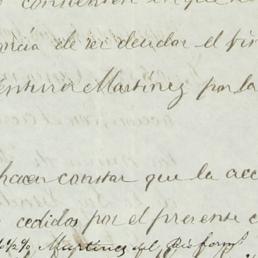 consienten
ncia de ser deudor el fin
entura Martinez por la
hacen constar que la acc
cedidos por el presente c
Martinez